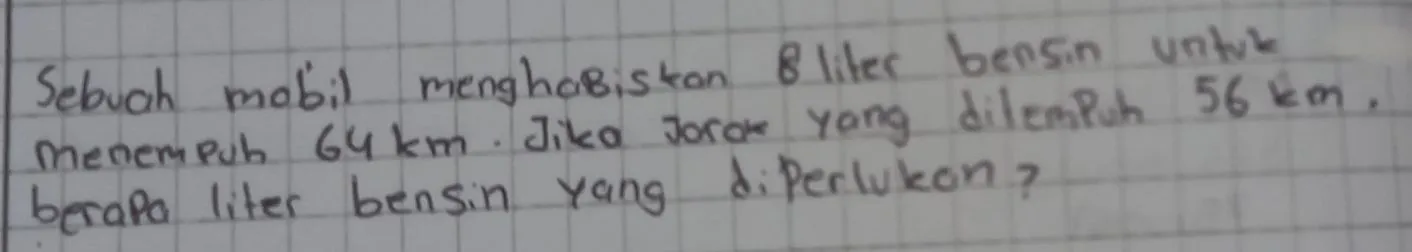 Sebuah mobil menghabiskan 8 liter bensin untuk
menempuh 64 km. Jika Jarak yang ditempuh 56 km,
berapa liter bensin yang diperlukan?